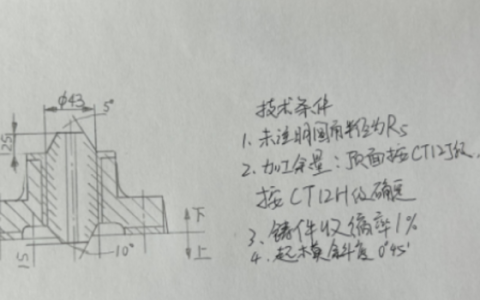 φ43
5°
125
下
上
10°
15
技术条件
1、未注明圆角半径为R5
2、加工余量：顶面按CT12J级，
按CT12H级确定
3、铸件收缩率1%
4、起模斜度0°45'